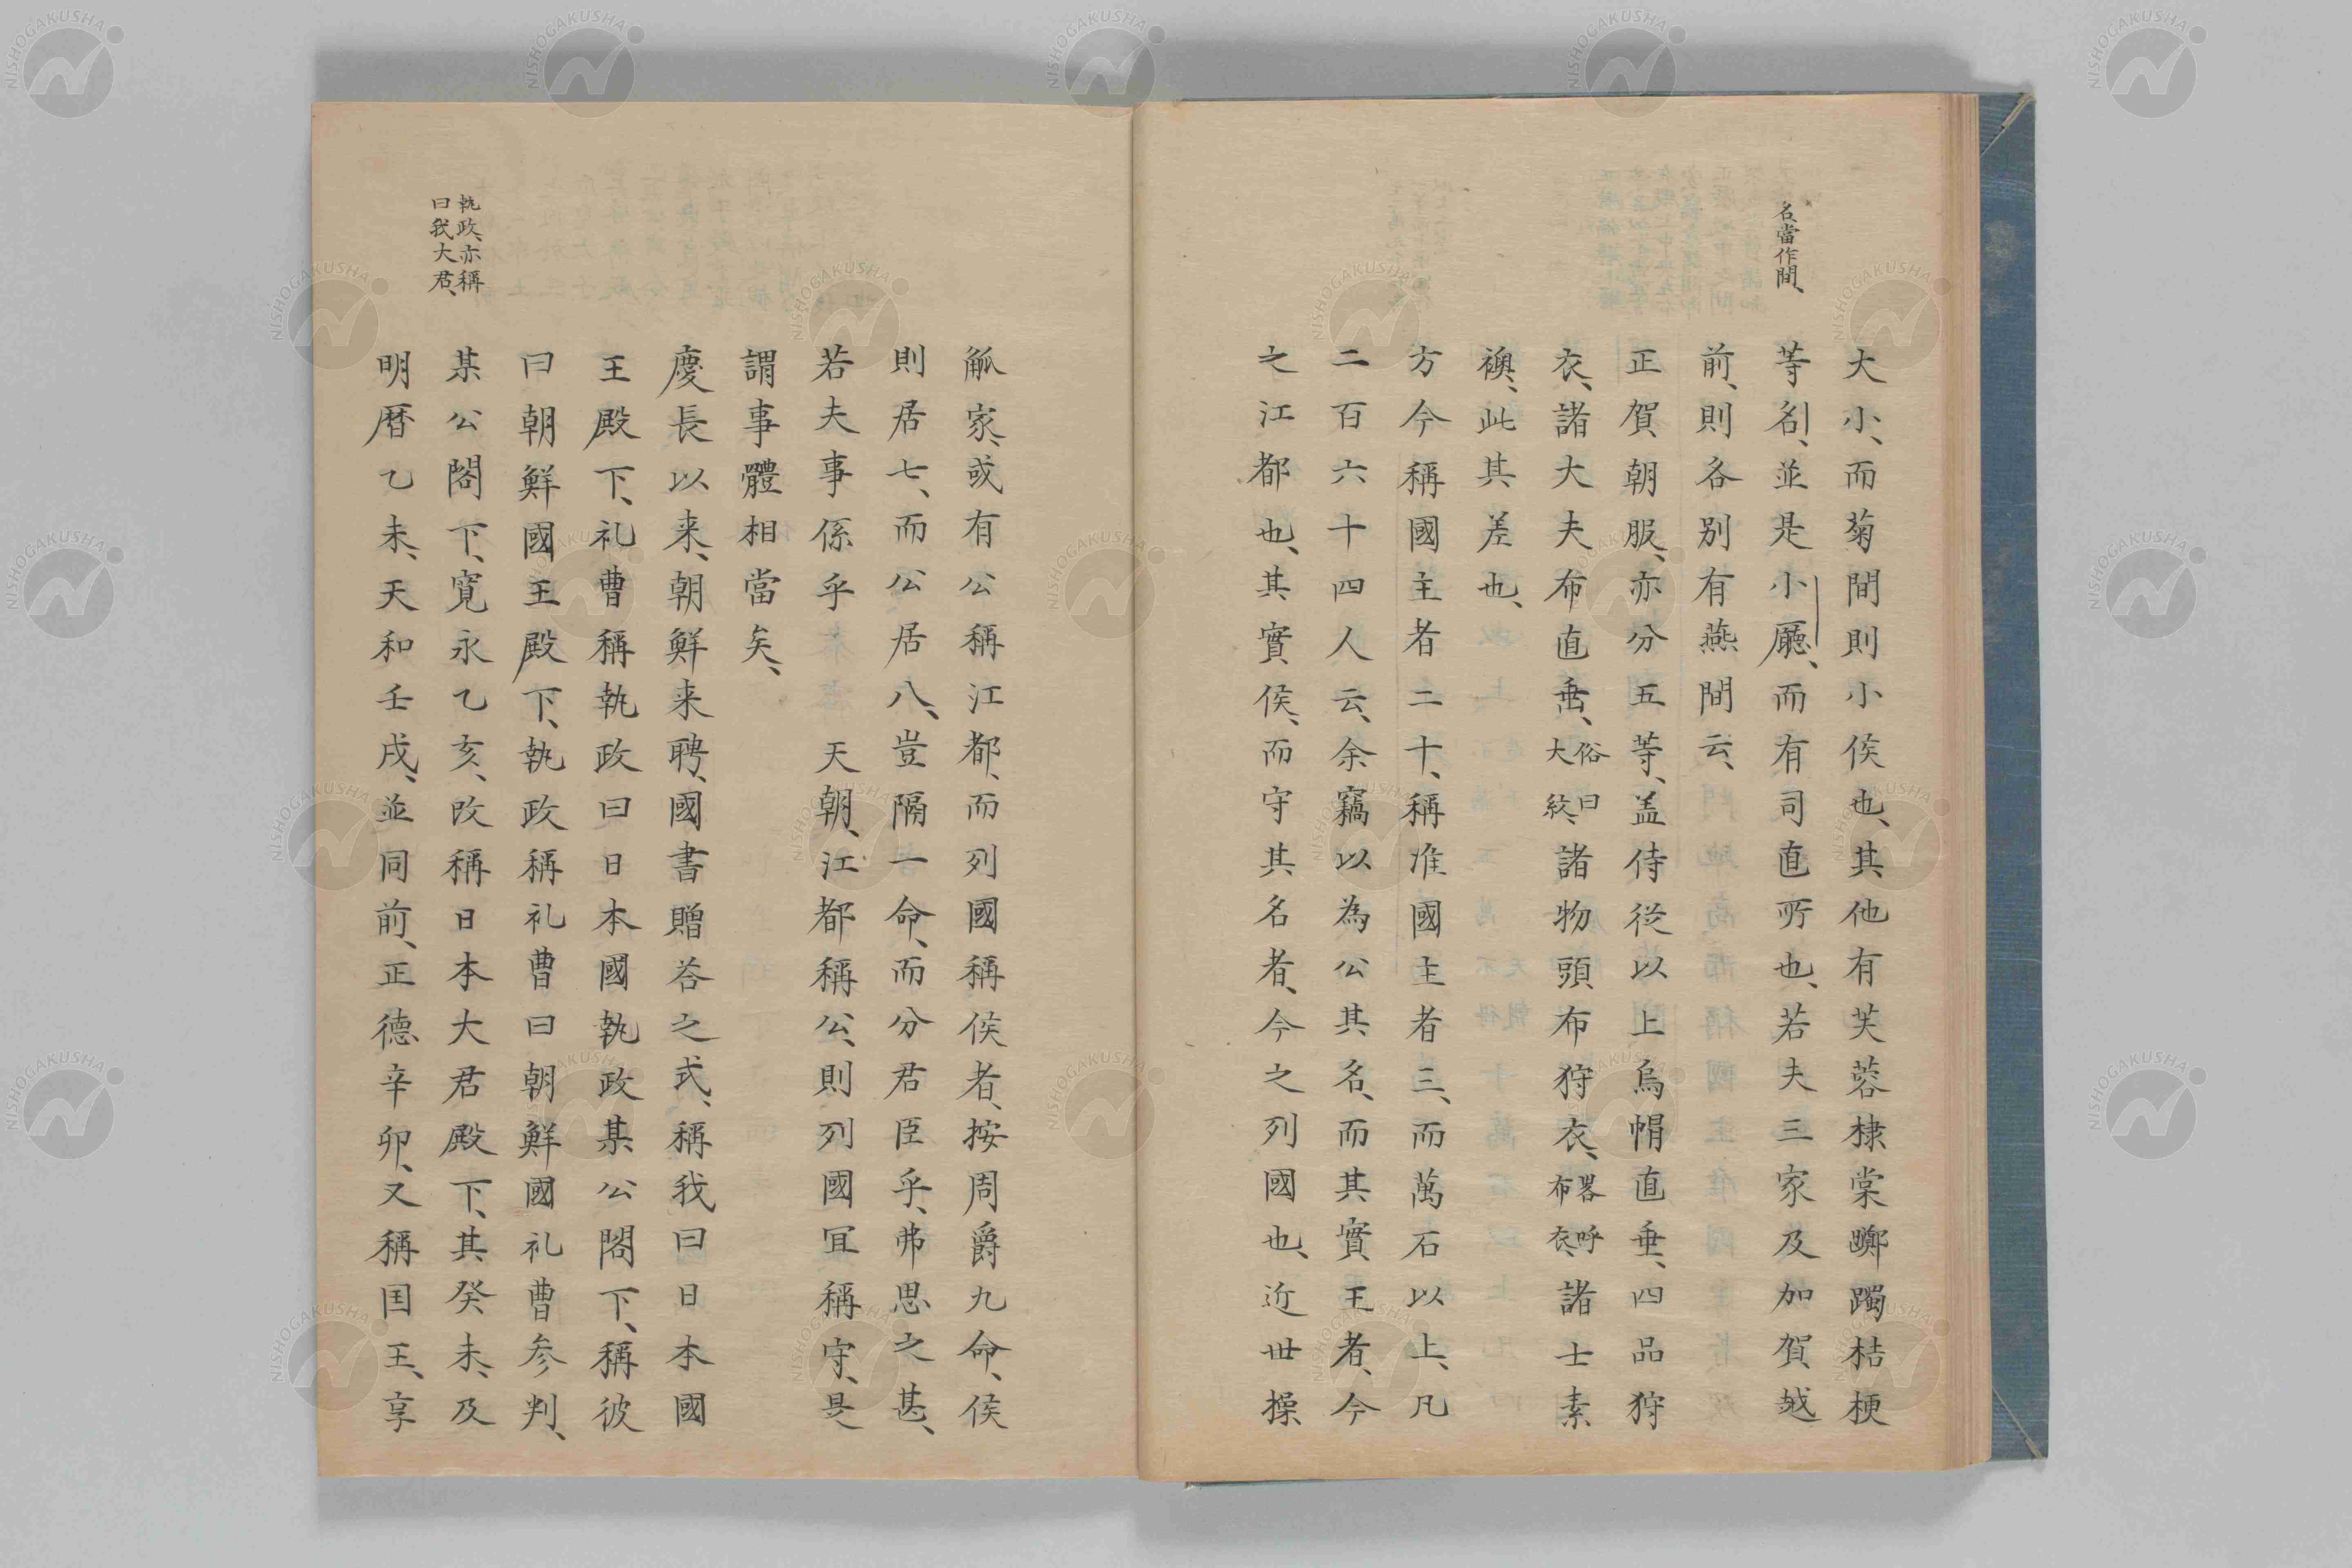 名當作間、
大小、而菊間則小侯也、其他有芙蓉棣棠躑躅桔梗
等名、並是小廳、而有司直所也、若夫三家及加賀越
前、則各別有燕間云、
正賀朝服、亦分五等、盖侍從以上烏帽直垂、四品狩
衣、諸大夫布直垂、俗曰大紋、諸物頭布狩衣、畧呼布衣、諸士素
襖、此其差也、
方今稱國主者二十、稱准國主者三、而萬石以上、凡
二百六十四人云、余竊以為公其名、而其實王者、今
之江都也、其實侯、而守其名者、今之列國也、近世操
觚家、或有公稱江都、而列國稱侯者、按周爵九命、侯
則居七、而公居八、豈隔一命、而分君臣乎、弗思之甚、
若夫事係乎 天朝、江都稱公、則列國冝稱守、是
謂事體相當矣、
慶長以来、朝鮮来聘、國書贈荅之式、稱我曰日本國
王殿下、礼曹稱執政曰日本國執政某公閤下、稱彼
曰朝鮮國王殿下、執政稱礼曹曰朝鮮國礼曹参判、
執政、亦稱
曰我大君、
某公閤下、寛永乙亥、改稱日本大君殿下、其癸未、及
明暦乙未、天和壬戌、並同前、正德辛卯、又稱国王、享
NISHOGAKUSHA